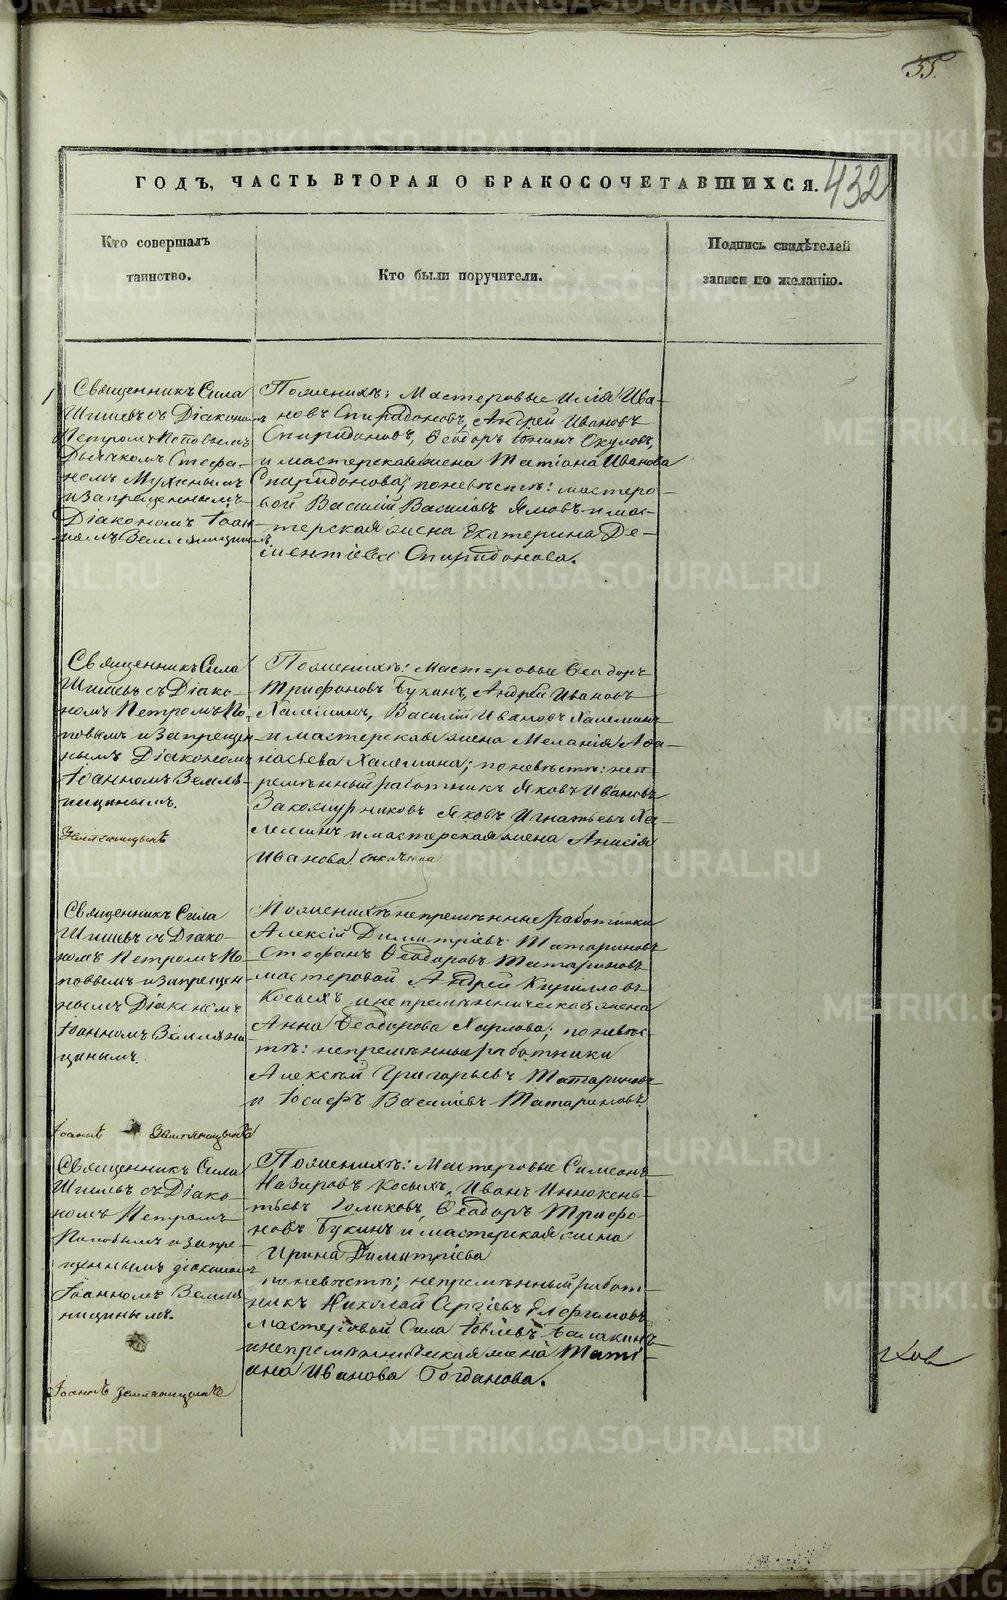 55.
ГОДЪ, ЧАСТЬ ВТОРАЯ О БРАКОСОЧЕТАВШИХСЯ.
432
Кто совершалъ
таинство.
Кто были поручители.
Подпись свидѣтелей
записи по желанію.
Священникъ Сила
Шишевъ съ Діакономъ
Петромъ Поповымъ
Дьячкомъ Стефа-
номъ Мухинымъ
и запрещеннымъ
Діакономъ Іоан-
номъ Земляницинымъ
Поженихѣ: Мастеровые Илія Ива-
новъ Спиридоновъ, Андрей Ивановъ
Спиридоновъ, Ѳеодоръ Окуловъ,
и мастерская жена Татіана Иванова
Спиридонова; поневѣстѣ: мастеро-
вой Василій Василіевъ Ямовъ и мас-
терская жена Екатерина Де-
ментіева Спиридонова.
Священникъ Сила
Шишевъ съ Діако-
номъ Петромъ По-
повымъ и запрещен-
нымъ Діакономъ
Іоанномъ Земля-
ницинымъ.
Земляницынъ
Поженихѣ: Мастеровые Ѳеодоръ
Трифоновъ Букинъ, Андрей Ивановъ
Халеминъ, Василій Ивановъ Халеминъ
и мастерская жена Меланія Аѳа-
насьева Халемина; поневѣстѣ: неп-
ремѣнный работникъ Яковъ Ивановъ
Закожурниковъ Яковъ Игнатьевъ Ха-
леминъ и мастерская жена Анисія
Иванова
Священникъ Сила
Шишевъ съ Діако-
номъ Петромъ По-
повымъ и запрещен
нымъ Діакономъ
Іоанномъ Земляни
цинымъ.
Іоаннъ Земляницынъ
Поженихѣ непремѣнные работники
Алексій Димитріевъ Татариновъ
Стефанъ Ѳеодоровъ Татариновъ
мастеровой Андрей Кирилловъ
Косыхъ и непремѣнническая жена
Анна Ѳеодорова Карлова; поневѣс-
тѣ: непремѣнные работники
Алексѣй Григорьевъ Татариновъ
и Іосифъ Василіевъ Татариновъ.
Священникъ Сила
Шишевъ съ Діако-
номъ Петромъ
Поповымъ и запре-
щеннымъ діакономъ
Іоанномъ Земля
ницинымъ.
Іоаннъ Земляницынъ
Поженихѣ: Мастеровые Симеонъ
Назаровъ Косыхъ, Иванъ Иннокень-
тьевъ Голиковъ, Ѳеодоръ Трифо-
новъ Букинъ и мастерская жена
Ирина Димитріева
поневѣстѣ; непремѣнный работ-
никъ Николай Сергіевъ Елфимовъ
мастеровой Сила Іовлевъ Балакинъ
и непремѣнническая жена Тати-
ана Иванова Богданова.